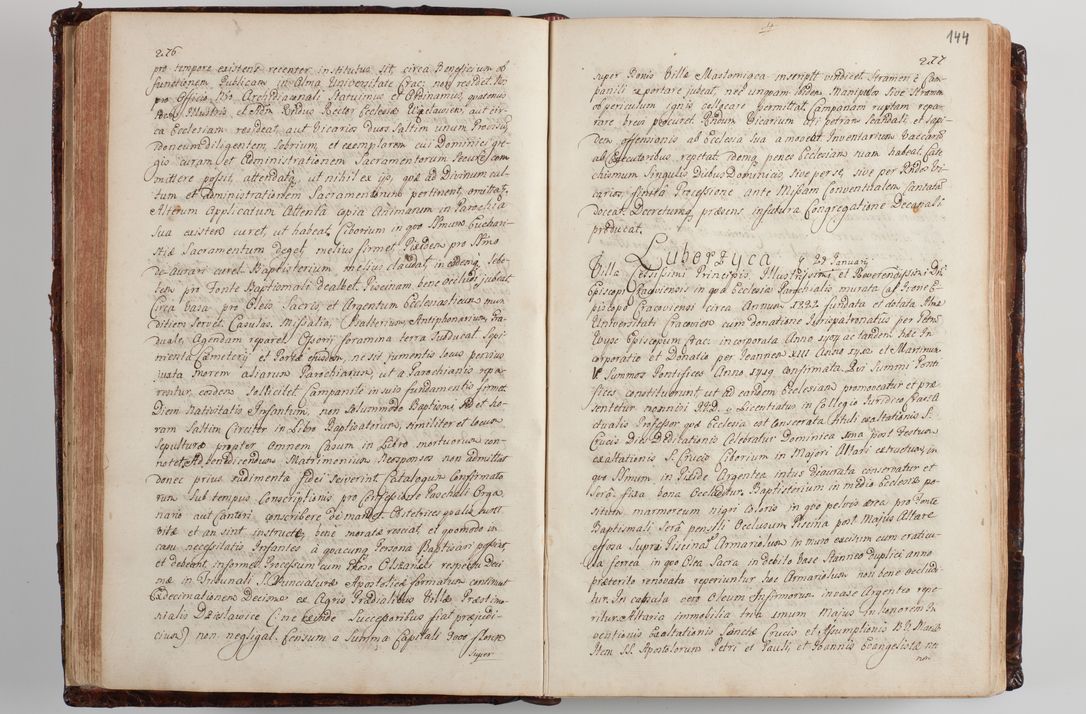 276
pro tempore existens recenter institutus sit circa Beneficium ob
functionem Publicam in Alma Universitate Crac: non residet
pro Officio Archidiaconali Statuimus et Ordinamus, quatenus
Illustris et Rndus Rector Ecclesiæ aut cir
ca Ecclesiam resideat, aut Vicarios Duos Saltim unum
Idoneum Diligentem Sobrium et exemplarem cui Dominici gre
gis curam et Administrationem Sacramentorum Secure com
mittere possit, attendatq ut nihil ex ijs, quæ ad Divinum cul
tum et Administrationem Sacramentorum pertinent, omittat
Alterum Applicatum Attentâ copiâ Animarum in Parochia
Sua existen curet, ut habeat. Ciborium in quo SSmum Euchari
stiæ Sacramentum deget melius firmet pro SSmo
de-aurari curet. Baptisterium melius claudat, in eodemq
pro Fonte Baptismali dealbet. Piscinam bene occludi jubeat
Circa vasa pro Oleis Sacris et Argentum Ecclesiasticum mun
ditiem Servet. Casulas, Missalia, Psalterium, Antiphonarium, Gra
duale, Agendam reparet. Ossorij foramina terra Adducat. Sepi
menta Cæmeterij et Portæ ejusdem, ne sit jumentis locus pervius
juxta morem aliarum Parochiarum, ut a Parochianis repa
rentur eosdem sollicitet. Campanile in suis fundamentis firmet
Diem Nativitatis Infantum, non Solummodo Baptismi, Sed et ho
ram Saltim Circiter in Libro Baptisatorum, similiter et locum
Sepulturæ propter omnem Casum in Libro mortuorum con
notet. Ad benedicendum Matrimonium Sponsos non admittat
donec prius rudimenta fidei Sciverint. Catalogum Confirmato
rum Sub tempus Conscriptionis pro Confessione Paschali Orga
nario aut Cantori conscribere demandet. Obstetrices qualis sunt
vitæ et an sint instructæ, bene moratæ resciat, et quomodo in
casu necessitatis Infantes a quacunq Persona Baptisari possint
et debeant, informet. Processum cum Rndo Olszanski respectu Deci
mæ in Tribunali S. Nunciaturæ Apostolicæ formatum continuet
Decimationem Decimæ ex Agris Prædialibus Villæ Præsimo
nialis Dzislawice (: ne exinde Successoribus fiat præjudi
cium) non negligat. Censum a Summa Capitali 3000 floren
super
144
277
super Bonis Villæ Maslomiąca inscripta vindicet. Stramen è Cam
panili exportare jubeat, nec unquam ibidem Manipulos sive Stramen
ob periculum ignis collocare permittat, Campanam ruptam repa
rare brevi procuret. Rndum Vicarium uti petram Scandali, et lapi
dem offensionis ab Ecclesia sua amoveat. Inventarium Vaccarum
ab Executoribus repetat. Idemq penes Ecclesiam suam habeat. Cate
chismum Singulis diebus Dominicis, sive per se, sive per Rndos Vi
carios, finitâ Processione ante Missam Conventualem Cantatam
doceat. Decretumq præsens in futura Congregatione Decanali
producat.
Luborzyca
22 Januarij
Villa Celsissimi Principis, Illustrissimi et Reverendissimi Dni
Episcopi Cracoviensis in qua Ecclesia Parochialis murata a Irone E
piscopo Cracoviensi circa Annum fundata et dotata Almæ
Universitati Cracoviensi cum donatione Jurispatronatus per Petrum
Wysz Episcopum Crac: incorporata Anno tandem hæc In
corporatio et Donatio per Joannem XIII Anno et Martinum
V Summos Pontifices Anno confirmata. Qui Summi Ponti
fices constituerunt ut ad eandem Ecclesiam promoveatur et præ
sentetur nonnisi Licentiatus in Collegio Juridico
Professor quæ Ecclesia est Consecrata tituli exaltationis S.
Crucis Dies Dedicationis Celebratur Dominica 1ma post Festum
exaltationis S. Crucis. Ciborium in Majori Altari extructum, in
quo SSmum in Pixide Argentea intus deaurata conservatur et
Serâ fixa bona occluditur, Baptisterium in medio Ecclesiæ po
situm marmoreum nigri coloris in quo pelvis ærea pro Fonte
Baptismali serâ pensili occlusum Piscina post Majus Altare
effossa. Supra Piscinam Armariolum in muro excisum cum craticu
la ferrea in quo Olea Sacra in debito Vase Stanneo duplici anno
præterito renovata reperiuntur hoc Armariolum non bene occludi
tur. In capsula vero Oleum Infirmorum in vase Argenteo repe
ritur. Altaria immobilia tria unum Majus In honorem In
ventionis Exaltationis Sanctæ Crucis et Assumptionis B.V. Mariæ
Item SS. Apostolorum Petri et Pauli, et Joannis Evangelistæ nec
non